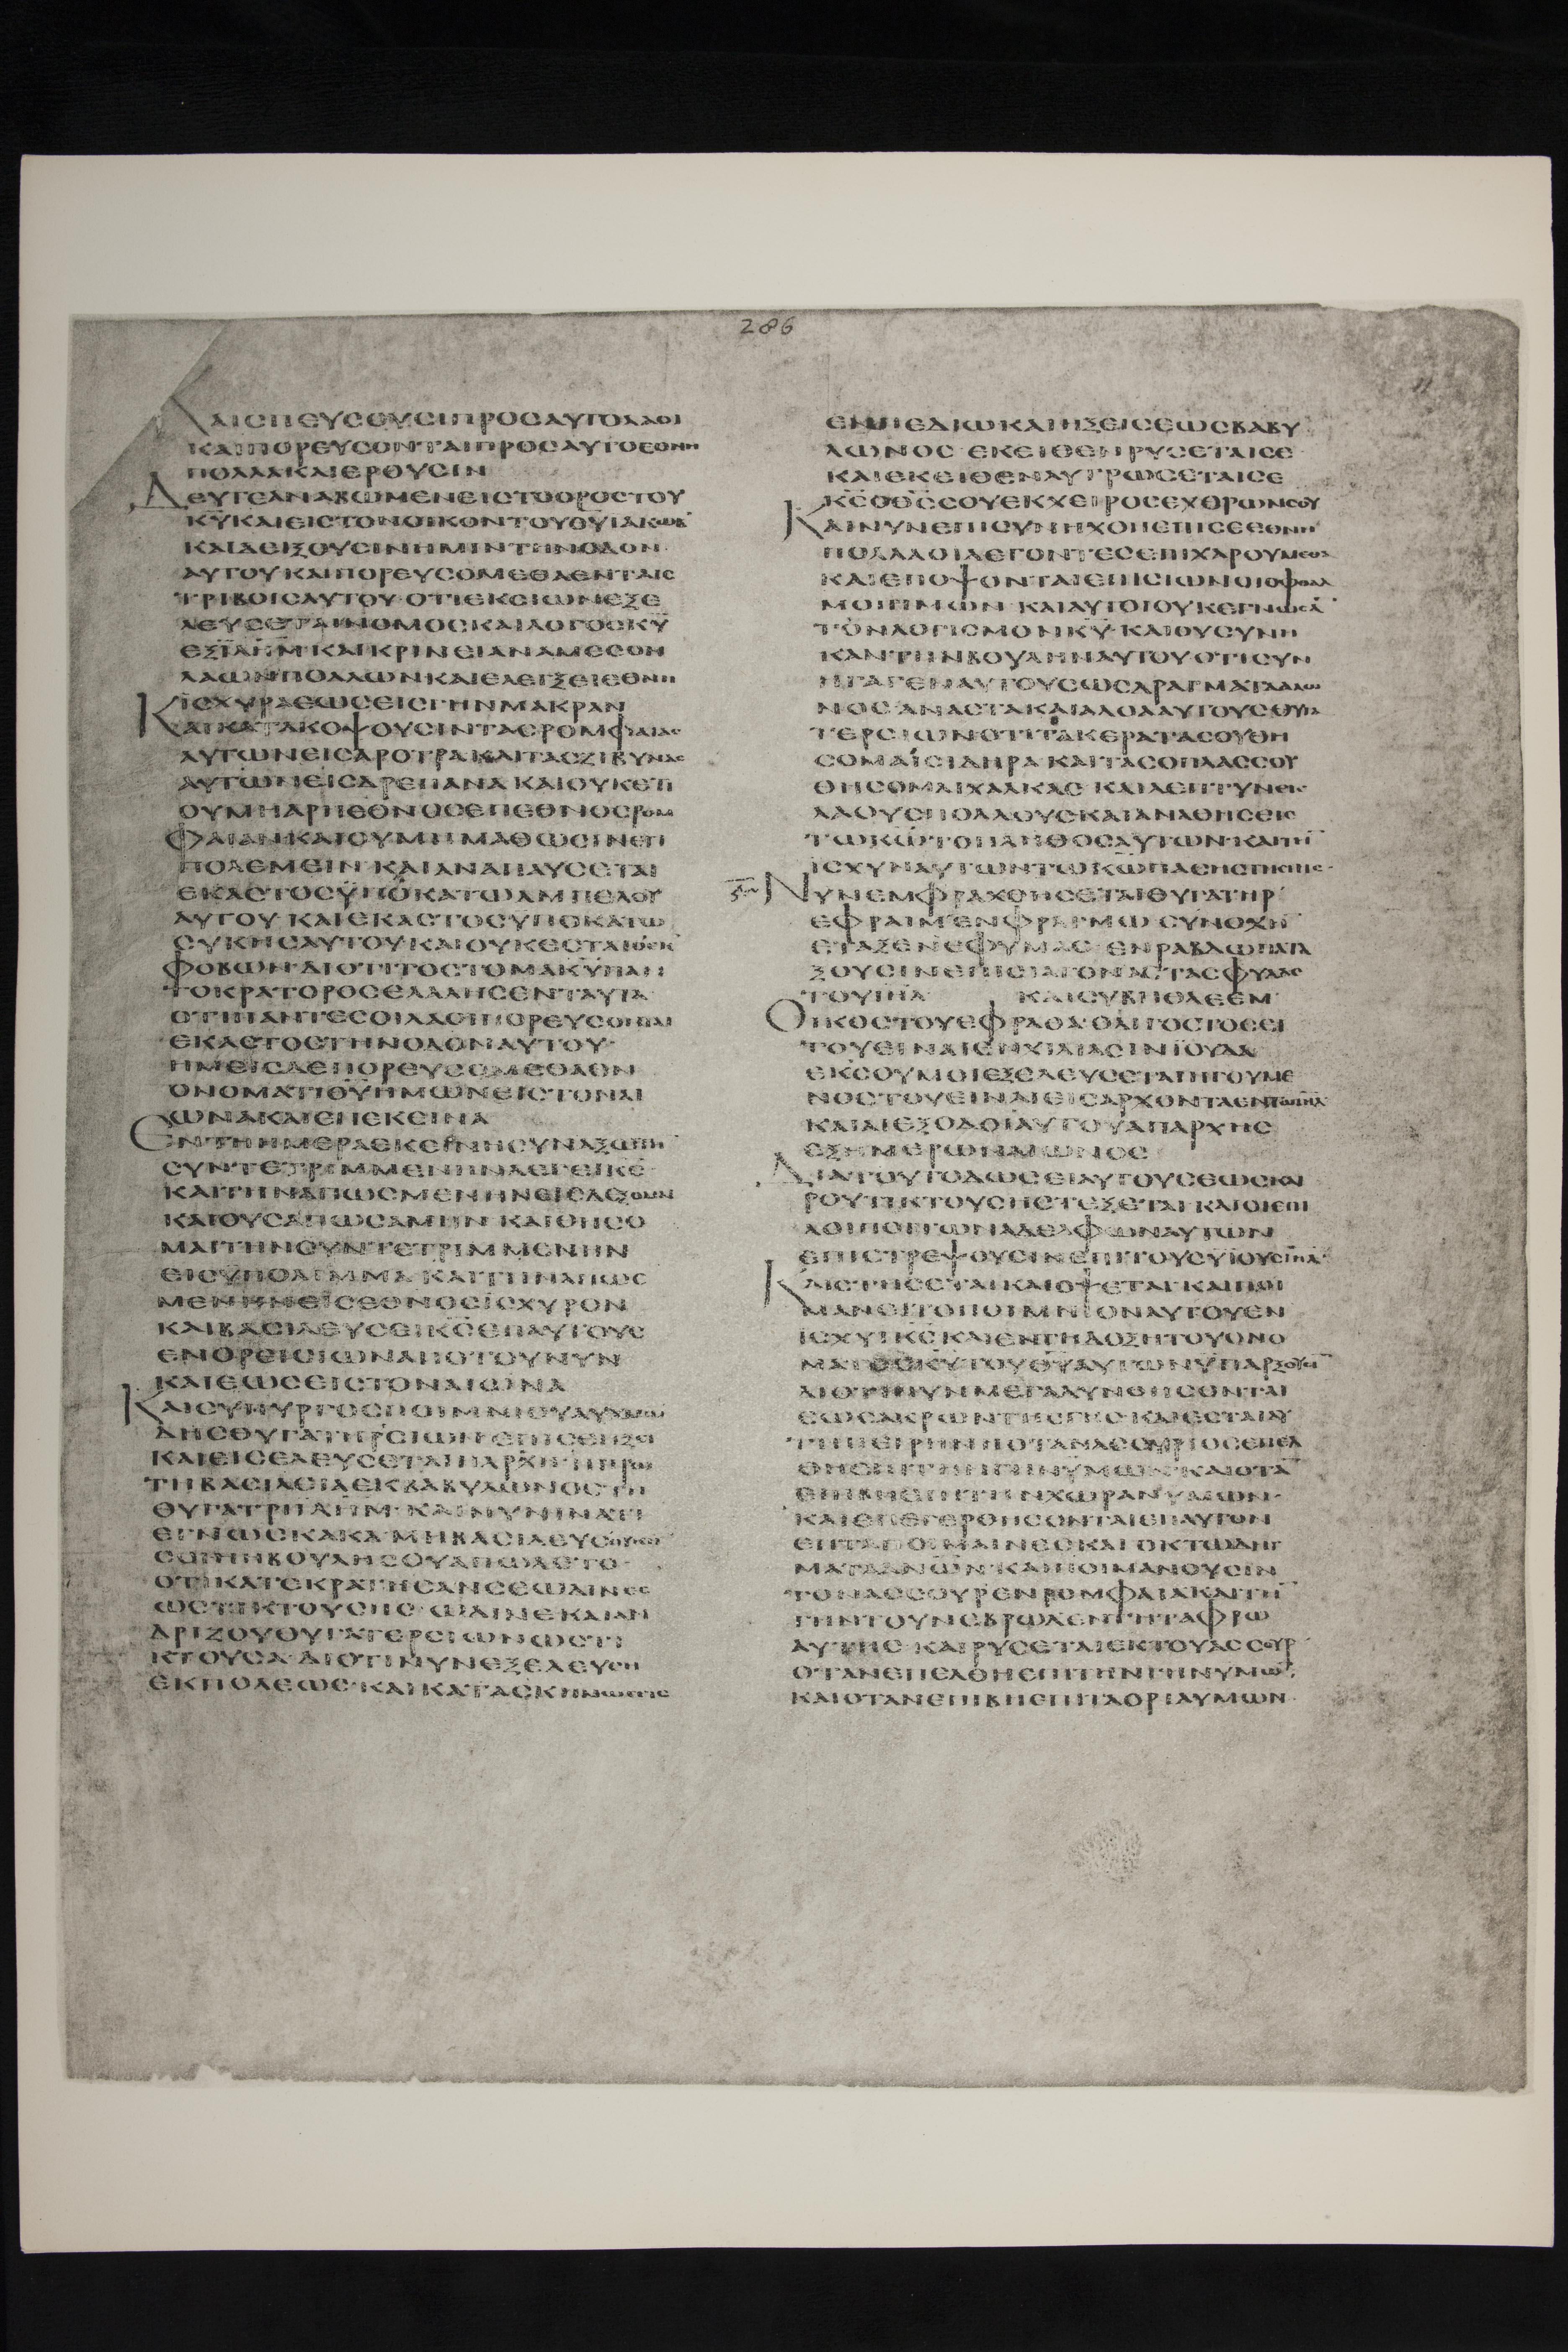 286
ΚΑΙϹΠΕΥϹΟΥϹΙΠΡΟϹΑΥΤΟΛΑΟΙ
ΚΑΙΠΟΡΕΥϹΟΝΤΑΙΠΡΟϹΑΥΤΟΕΘΝΗ
ΠΟΛΛΑΚΑΙΕΡΟΥϹΙΝ
ΔΕΥΤΕΑΝΑΒΩΜΕΝΕΙϹΤΟΟΡΟϹΤΟΥ
Κ̅Υ̅ΚΑΙΕΙϹΤΟΝΟΙΚΟΝΤΟΥΘ̅Υ̅ΙΑΚΩΒ
ΚΑΙΔΕΙΞΟΥϹΙΝΗΜΙΝΤΗΝΟΔΟΝ
ΑΥΤΟΥΚΑΙΠΟΡΕΥϹΟΜΕΘΑΕΝΤΑΙϹ
ΤΡΙΒΟΙϹΑΥΤΟΥ·ΟΤΙΕΚϹΙΩΝΕΞΕ
ΛΕΥϹΕΤΑΙΝΟΜΟϹΚΑΙΛΟΓΟϹΚ̅Υ̅
ΕΞΙ̅Λ̅Η̅Μ̅·ΚΑΙΚΡΙΝΕΙΑΝΑΜΕϹΟΝ
ΛΑΩΝΠΟΛΛΩΝΚΑΙΕΛΕΓΞΕΙΕΘΝΗ
ΙϹΧΥΡΑΕΩϹΕΙϹΓΗΝΜΑΚΡΑΝ
ΚΑΙΚΑΤΑΚΟΨΟΥϹΙΝΤΑϹΡΟΜΦΑΙΑϹ
ΑΥΤΩΝΕΙϹΑΡΟΤΡΑΚΑΙΤΑϹΖΙΒΥΝΑϹ
ΑΥΤΩΝΕΙϹΔΡΕΠΑΝΑΚΑΙΟΥΚΕΤΙ
ΟΥΜΗΑΡΗΕΘΝΟϹΕΠΕΘΝΟϹΡΟΜ
ΦΑΙΑΝΚΑΙΟΥΜΗΜΑΘΩϹΙΝΕΤΙ
ΠΟΛΕΜΕΙΝ·ΚΑΙΑΝΑΠΑΥϹΕΤΑΙ
ΕΚΑϹΤΟϹΫΠΟΚΑΤΩΑΜΠΕΛΟΥ
ΑΥΤΟΥ·ΚΑΙΕΚΑϹΤΟϹΫΠΟΚΑΤΩ
ϹΥΚΗϹΑΥΤΟΥΚΑΙΟΥΚΕϹΤΑΙΟΕΚ
ΦΟΒΩΝ·ΔΙΟΤΙΤΟϹΤΟΜΑΚ̅Υ̅ΠΑΝ
ΤΟΚΡΑΤΟΡΟϹΕΛΑΛΗϹΕΝΤΑΥΤΑ·
ΟΤΙΠΑΝΤΕϹΟΙΛΑΟΙΠΟΡΕΥϹΟΝΤΑΙ
ΕΚΑϹΤΟϹΤΗΝΟΔΟΝΑΥΤΟΥ·
ΗΜΕΙϹΔΕΠΟΡΕΥϹΟΜΕΘΑΕΝ
ΟΝΟΜΑΤΙΘ̅Υ̅ΗΜΩΝΕΙϹΤΟΝΑΙ
ΩΝΑΚΑΙΕΠΕΚΕΙΝΑ
ΕΝΤΗΗΜΕΡΑΕΚΕΙΝΗϹΥΝΑΞΩΤΗΝ
ϹΥΝΤΕΤΡΙΜΜΕΝΗΝΛΕΓΕΙΚ̅Ϲ̅
ΚΑΙΤΗΝΑΠΩϹΜΕΝΗΝΕΙϹΔΕΞΟΜΑΙ
ΚΑΙΟΥϹΑΠΩϹΑΜΗΝ·ΚΑΙΘΗϹΟ
ΜΑΙΤΗΝϹΥΝΤΕΤΡΙΜΜΕΝΗΝ
ΕΙϹΫΠΟΛΙΜΜΑ·ΚΑΙΤΗΝΑΠΩϹ
ΜΕΝΗΝΕΙϹΕΘΝΟϹΙϹΧΥΡΟΝ
ΚΑΙΒΑϹΙΛΕΥϹΕΙΚ̅Ϲ̅ΕΠΑΥΤΟΥϹ
ΕΝΟΡΕΙϹΙΩΝΑΠΟΤΟΥΝΥΝ
ΚΑΙΕΩϹΕΙϹΤΟΝΑΙΩΝΑ
ΚΑΙϹΥΠΥΡΓΟϹΠΟΙΜΝΙΟΥΑΥΧΜΩ
ΔΗϹΘΥΓΑΤΗΡϹΙΩΝ·ΕΠΙϹΕΗΞΕΙ
ΚΑΙΕΙϹΕΛΕΥϹΕΤΑΙΗΑΡΧΗ·ΗΠΡΩ
ΤΗΒΑϹΙΛΕΙΑΕΚΒΑΒΥΛΩΝΟϹΤΗ
ΘΥΓΑΤΡΙΙ̅Λ̅Η̅Μ̅·ΚΑΙΝΥΝΙΝΑΤΙ
ΕΓΝΩϹΚΑΚΑ·ΜΗΒΑϹΙΛΕΥϹΟΥΚΗΝ
ϹΟΙΗΗΒΟΥΛΗϹΟΥΑΠΩΛΕΤΟ·
ΟΤΙΚΑΤΕΚΡΑΤΗϹΑΝϹΕΩΔΙΝΕϹ
ΩϹΤΙΚΤΟΥϹΗϹ·ΩΔΙΝΕΚΑΙΑΝ
ΔΡΙΖΟΥΘΥΓΑΤΕΡϹΙΩΝΩϹΤΙ
ΚΤΟΥϹΑ·ΔΙΟΤΙΝΥΝΕΞΕΛΕΥϹΗ
ΕΚΠΟΛΕΩϹ·ΚΑΙΚΑΤΑϹΚΗΝΩϹΕΙϹ
ΕΝΠΕΔΙΩΚΑΙΗΞΕΙϹΕΩϹΒΑΒΥ
ΛΩΝΟϹ·ΕΚΕΙΘΕΝΡΥϹΕΤΑΙϹΕ
ΚΑΙΕΚΕΙΘΕΝΛΥΤΡΩϹΕΤΑΙϹΕ
Κ̅Ϲ̅ΟΘ̅Ϲ̅ϹΟΥΕΚΧΕΙΡΟϹΕΧΘΡΩΝϹΟΥ
ΚΑΙΝΥΝΕΠΙϹΥΝΗΧΘΗΕΠΙϹΕΕΘΝΗ
ΠΟΛΛΑΟΙΛΕΓΟΝΤΕϹΕΠΙΧΑΡΟΥΜΕΘΑ
ΚΑΙΕΠΟΨΟΝΤΑΙΕΠΙϹΙΩΝΟΙΟΦΘΑΛ
ΜΟΙΗΜΩΝ·ΚΑΙΑΥΤΟΙΟΥΚΕΓΝΩϹΑ̅
ΤΟΝΛΟΓΙϹΜΟΝΚ̅Υ̅·ΚΑΙΟΥϹΥΝΗ
ΚΑΝΤΗΝΒΟΥΛΗΝΑΥΤΟΥΟΤΙϹΥΝ
ΗΓΑΓΕΝΑΥΤΟΥϹΩϹΔΡΑΓΜΑΤΑΑΛΩ
ΝΟϹ·ΑΝΑϹΤΑΚΑΙΑΛΟΑΑΥΤΟΥϹΘΥΓΑ
ΤΕΡϹΙΩΝΟΤΙΤΑΚΕΡΑΤΑϹΟΥΘΗ
ϹΟΜΑΙϹΙΔΗΡΑ·ΚΑΙΤΑϹΟΠΛΑϹϹΟΥ
ΘΗϹΟΜΑΙΧΑΛΚΑϹ·ΚΑΙΛΕΠΤΥΝΕΙϹ
ΛΑΟΥϹΠΟΛΛΟΥϹΚΑΙΑΝΑΘΗϹΕΙϹ
ΤΩΚ̅Ω̅ΤΟΠΛΗΘΟϹΑΥΤΩΝ·ΚΑΙΤΗ̅
ΙϹΧΥΝΑΥΤΩΝΤΩΚ̅Ω̅ΠΑϹΗϹΤΗϹΓΗϹ
ΝΥΝΕΜΦΡΑΧΘΗϹΕΤΑΙΘΥΓΑΤΗΡ
ΕΦΡΑΙΜΕΝΦΡΑΓΜΩ·ϹΥΝΟΧΗ̅
ΕΤΑΞΕΝΕΦΥΜΑϹ·ΕΝΡΑΒΔΩΠΑΤΑ
ΞΟΥϹΙΝΕΠΙϹΙΑΓΟΝΑϹΤΑϹΦΥΛΑϹ
ΤΟΥΙ̅Η̅Λ̅ ΚΑΙϹΥΒΗΘΛΕΕΜ
ΟΙΚΟϹΤΟΥΕΦΡΑΘΑ·ΟΛΙΓΟϹΤΟϹΕΙ
ΤΟΥΕΙΝΑΙΕΝΧΙΛΙΑϹΙΝΙΟΥΔΑ
ΕΚϹΟΥΜΟΙΕΞΕΛΕΥϹΕΤΑΙΗΓΟΥΜΕ
ΝΟϹΤΟΥΕΙΝΑΙΕΙϹΑΡΧΟΝΤΑΕΝΤΩΙ̅Η̅Λ̅
ΚΑΙΑΙΕΞΟΔΟΙΑΥΤΟΥΑΠΑΡΧΗϹ
ΕΞΗΜΕΡΩΝΑΙΩΝΟϹ
ΔΙΑΤΟΥΤΟΔΩϹΕΙΑΥΤΟΥϹΕΩϹΚΑΙ
ΡΟΥΤΙΚΤΟΥϹΗϹΤΕΞΕΤΑΙ·ΚΑΙΟΙΕΠΙ
ΛΟΙΠΟΙΤΩΝΑΔΕΛΦΩΝΑΥΤΩΝ
ΕΠΙϹΤΡΕΨΟΥϹΙΝΕΠΙΤΟΥϹΥΙΟΥϹΙ̅Η̅Λ̅
ΚΑΙϹΤΗϹΕΤΑΙΚΑΙΟΨΕΤΑΙ·ΚΑΙΠΟΙ
ΜΑΝΕΙΤΟΠΟΙΜΝΙΟΝΑΥΤΟΥΕΝ
ΙϹΧΥΙΚ̅Ϲ̅ΚΑΙΕΝΤΗΔΟΞΗΤΟΥΟΝΟ
ΜΑΤΟϹΚ̅Υ̅ΤΟΥΘ̅Υ̅ΑΥΤΩΝΥΠΑΡΞΟΥϹΙ̅
ΔΙΟΤΙΝΥΝΜΕΓΑΛΥΝΘΗϹΟΝΤΑΙ
ΕΩϹΑΚΡΩΝΤΗϹΓΗϹ·ΚΑΙΕϹΤΑΙΑΥ
ΤΗΕΙΡΗΝΗΟΤΑΝΑϹϹΥΡΙΟϹΕΠΕΛ
ΘΗΕΠΙΤΗΝΓΗΝΥΜΩΝ·ΚΑΙΟΤΑ̅
ΕΠΙΒΗΕΠΙΤΗΝΧΩΡΑΝΥΜΩΝ·
ΚΑΙΕΠΕΓΕΡΘΗϹΟΝΤΑΙΕΠΑΥΤΟΝ
ΕΠΤΑΠΟΙΜΕΝΕϹΚΑΙΟΚΤΩΔΗΓ
ΜΑΤΑΑΝΩΝ·ΚΑΙΠΟΙΜΑΝΟΥϹΙΝ
ΤΟΝΑϹϹΟΥΡΕΝΡΟΜΦΑΙΑΚΑΙΤΗ̅
ΓΗΝΤΟΥΝΕΒΡΩΔΕΝΤΗΤΑΦΡΩ
ΑΥΤΗϹ·ΚΑΙΡΥϹΕΤΑΙΕΚΤΟΥΑϹϹΟΥΡ
ΟΤΑΝΕΠΕΛΘΗΕΠΙΤΗΝΓΗΝΥΜΩ̅
ΚΑΙΟΤΑΝΕΠΙΒΗΕΠΙΤΑΟΡΙΑΥΜΩΝ·